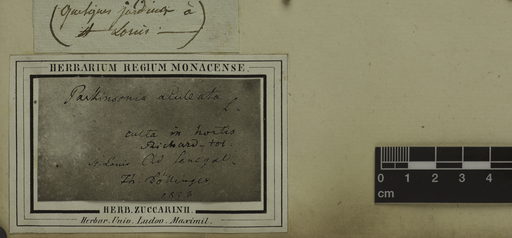 (Quelques jardins à
St Louis.)
HERBARIUM REGIUM MONACENSE.
Parkinsonia aculeata
L.
culta in hortis
Richard-tol.
St Louis Senegal.
HERB. ZUCCARINII.
Herbar. Univ. Ludov. Maximil.
0 1 2 3 4
cm